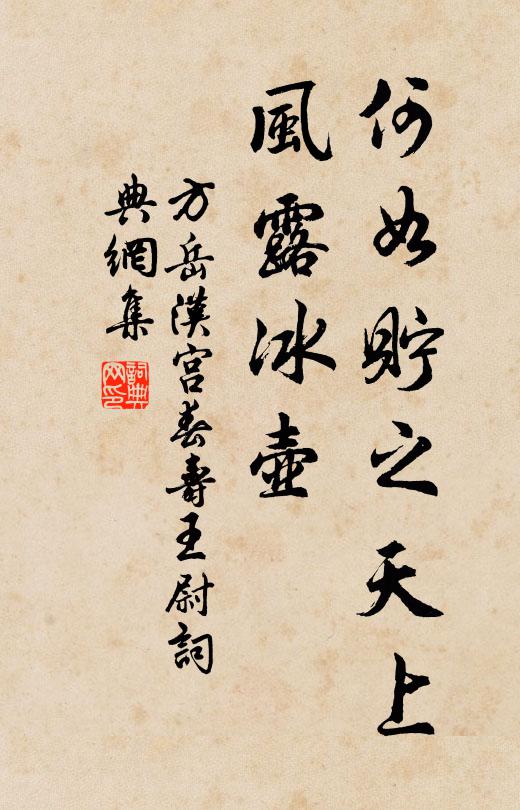 何如貯之天上
風露冰壺
方岳漢宮春壽王尉詞
典網集
詞典
网印